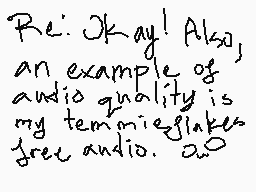 Re: Okay! Also,
an example of
audio quality is
my temmieflakes
free audio. OwO